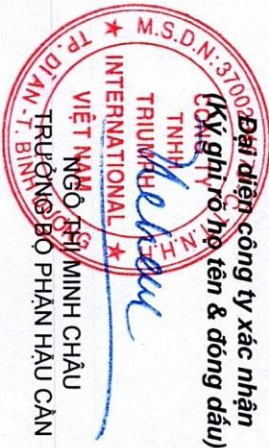 Đại diện công ty xác nhận
(Ký ghi rõ họ tên & đóng dấu)
M.S.D.N: 37002
CÔNG TY
TNHH
TRIUMPH
INTERNATIONAL
VIỆT NAM
TP. DĨ AN - T. BÌNH DƯƠNG
NGÔ THỊ MINH CHÂU
TRƯỞNG BỘ PHẬN HẬU CẦN